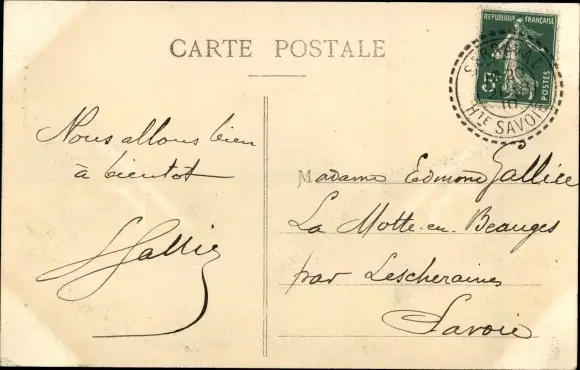 CARTE POSTALE
RÉPUBLIQUE FRANÇAISE
5c
POSTES
10
Hte SAVOIE
Nous allons bien
à bientôt
Madame Edmond Gallice
La Motte-en-Beauges
par Lescheraines
Savoie